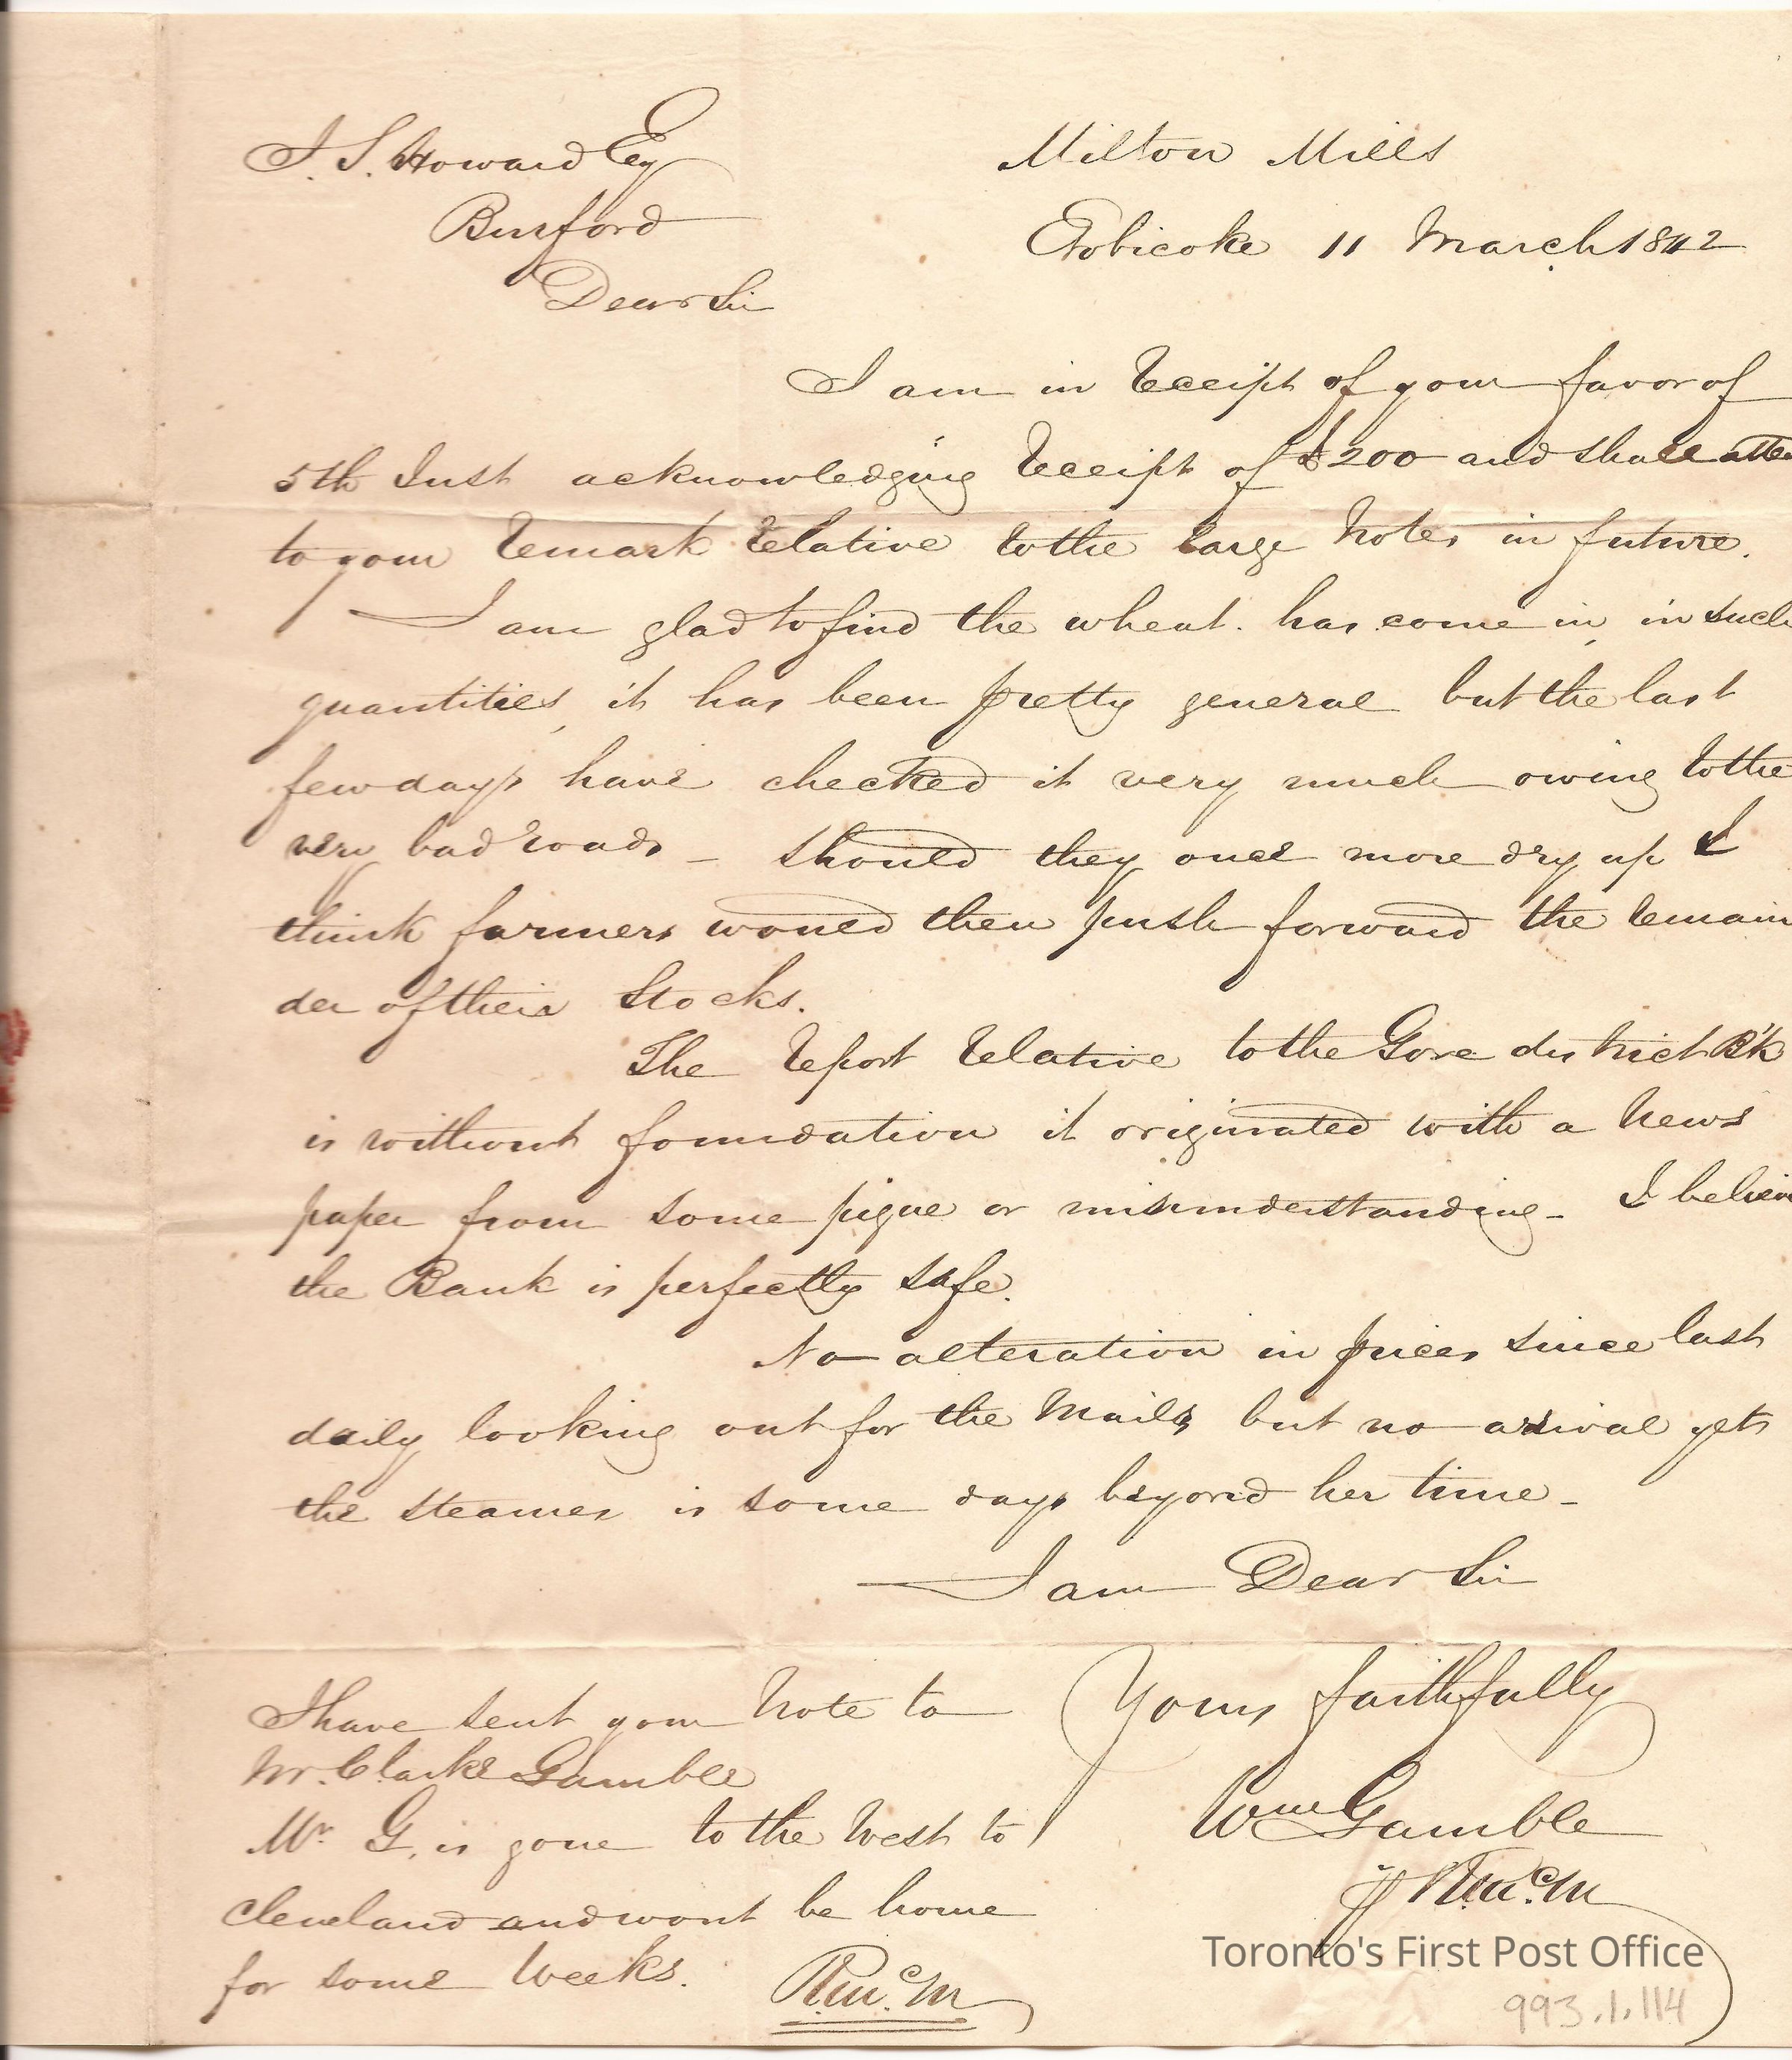 J. S. Howard Esq
Burford
Dear Sir
Milton Mills
Etobicoke 11 March 1842
I am in receipt of your favor of
5th Inst acknowledging receipt of £200 and shall atten
to your remark relative to the large notes in future.
I am glad to find the wheat. has come in, in such
quantities, it has been pretty general but the last
few days have checked it very much owing to the
very bad roads – should they once more dry up I
think farmers would then push forward the remain
der of their Stocks.
The report relative to the Gore district B'k
is without foundation it originated with a News
paper from some pique or misunderstanding – I believe
the Bank is perfectly safe.
No alteration in prices since last
daily looking out for the Mails, but no arrival yet,
the steamer is some days beyond her time –
I am Dear Sir
Yours faithfully
Wm Gamble
I have sent your note to
Mr. Clarke Gamble
Mr G. is gone to the West to
Cleveland and wont be home
for some weeks.
Toronto's First Post Office
993.1.114